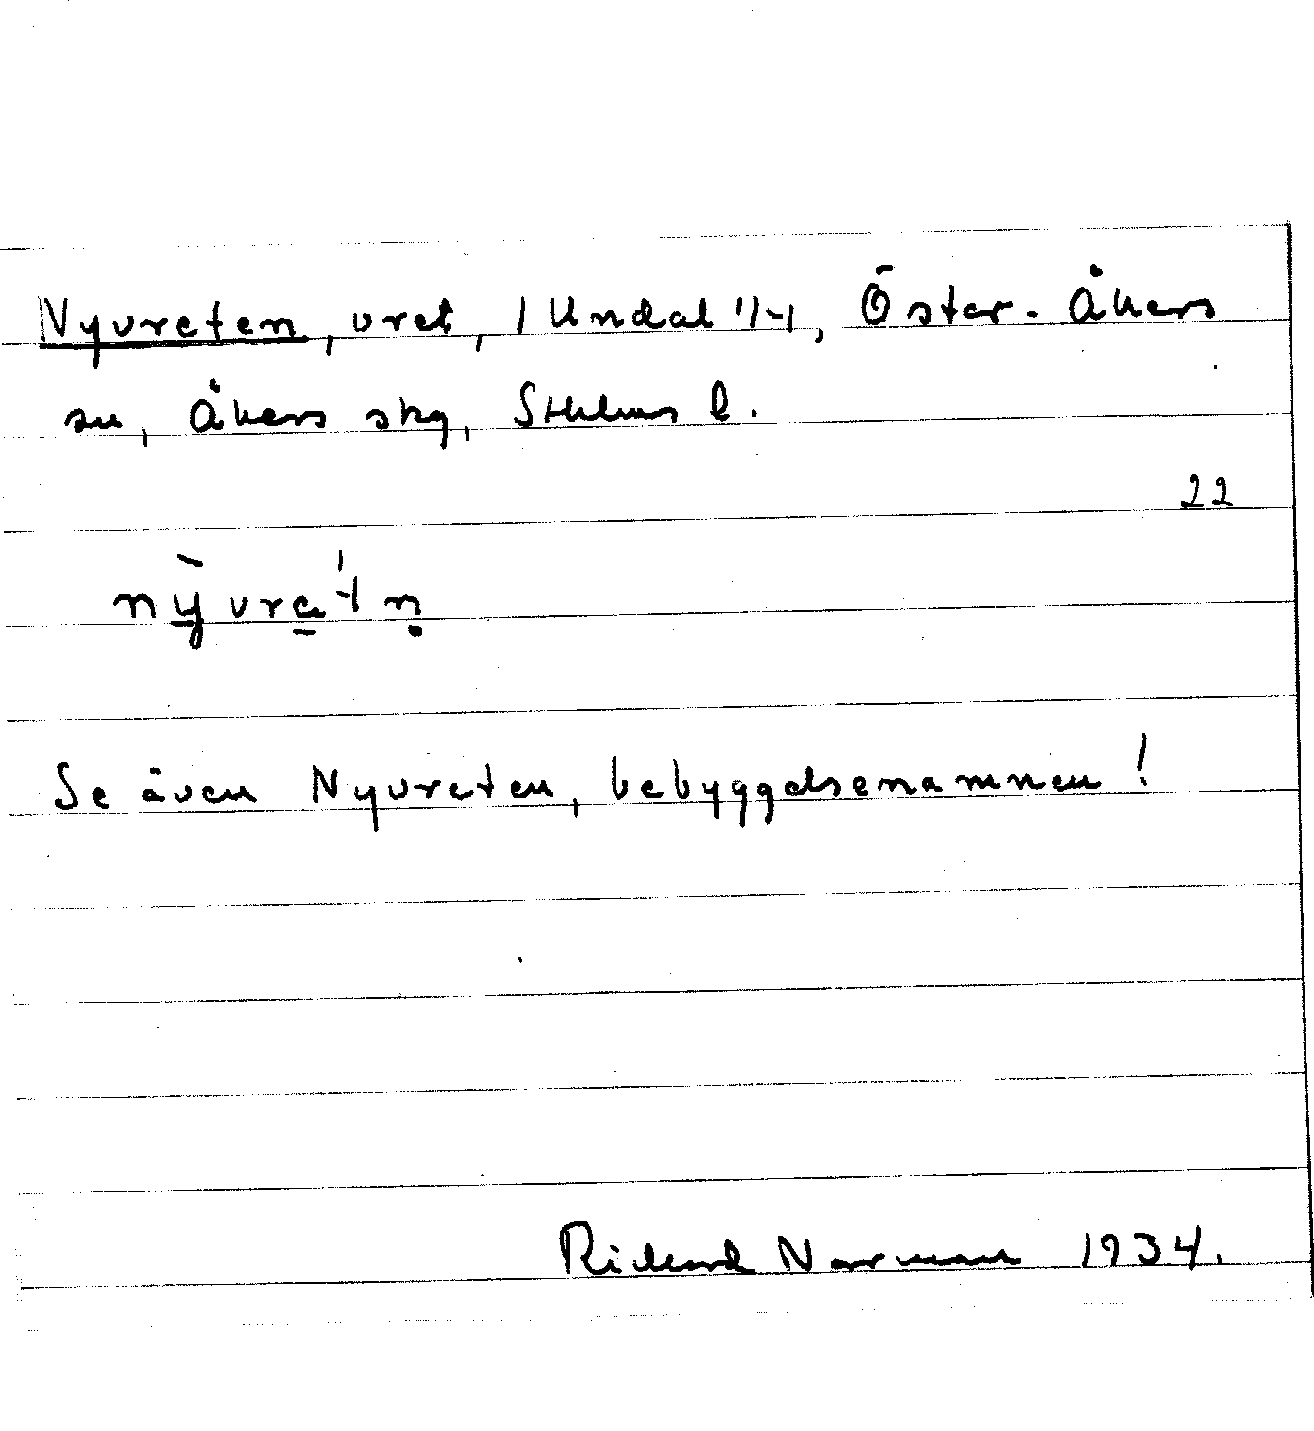 Nyvreten, vret, 1 Undal 1/1, Öster-Åkers
sn, Åkers skg, Sthlms l.
22
nỳvra't n̥
Se även Nyvreten, bebyggelsenamnen!
Rickard Norman 1934.